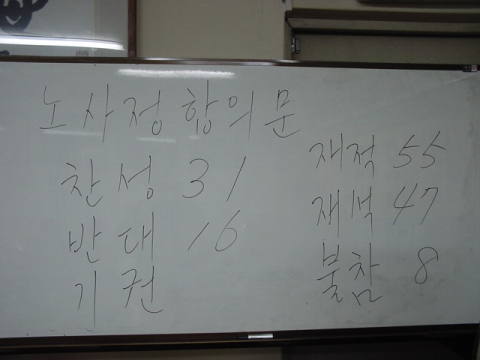 노사정 합의문
찬성 31
반대 16
기권
재적 55
재석 47
불참 8